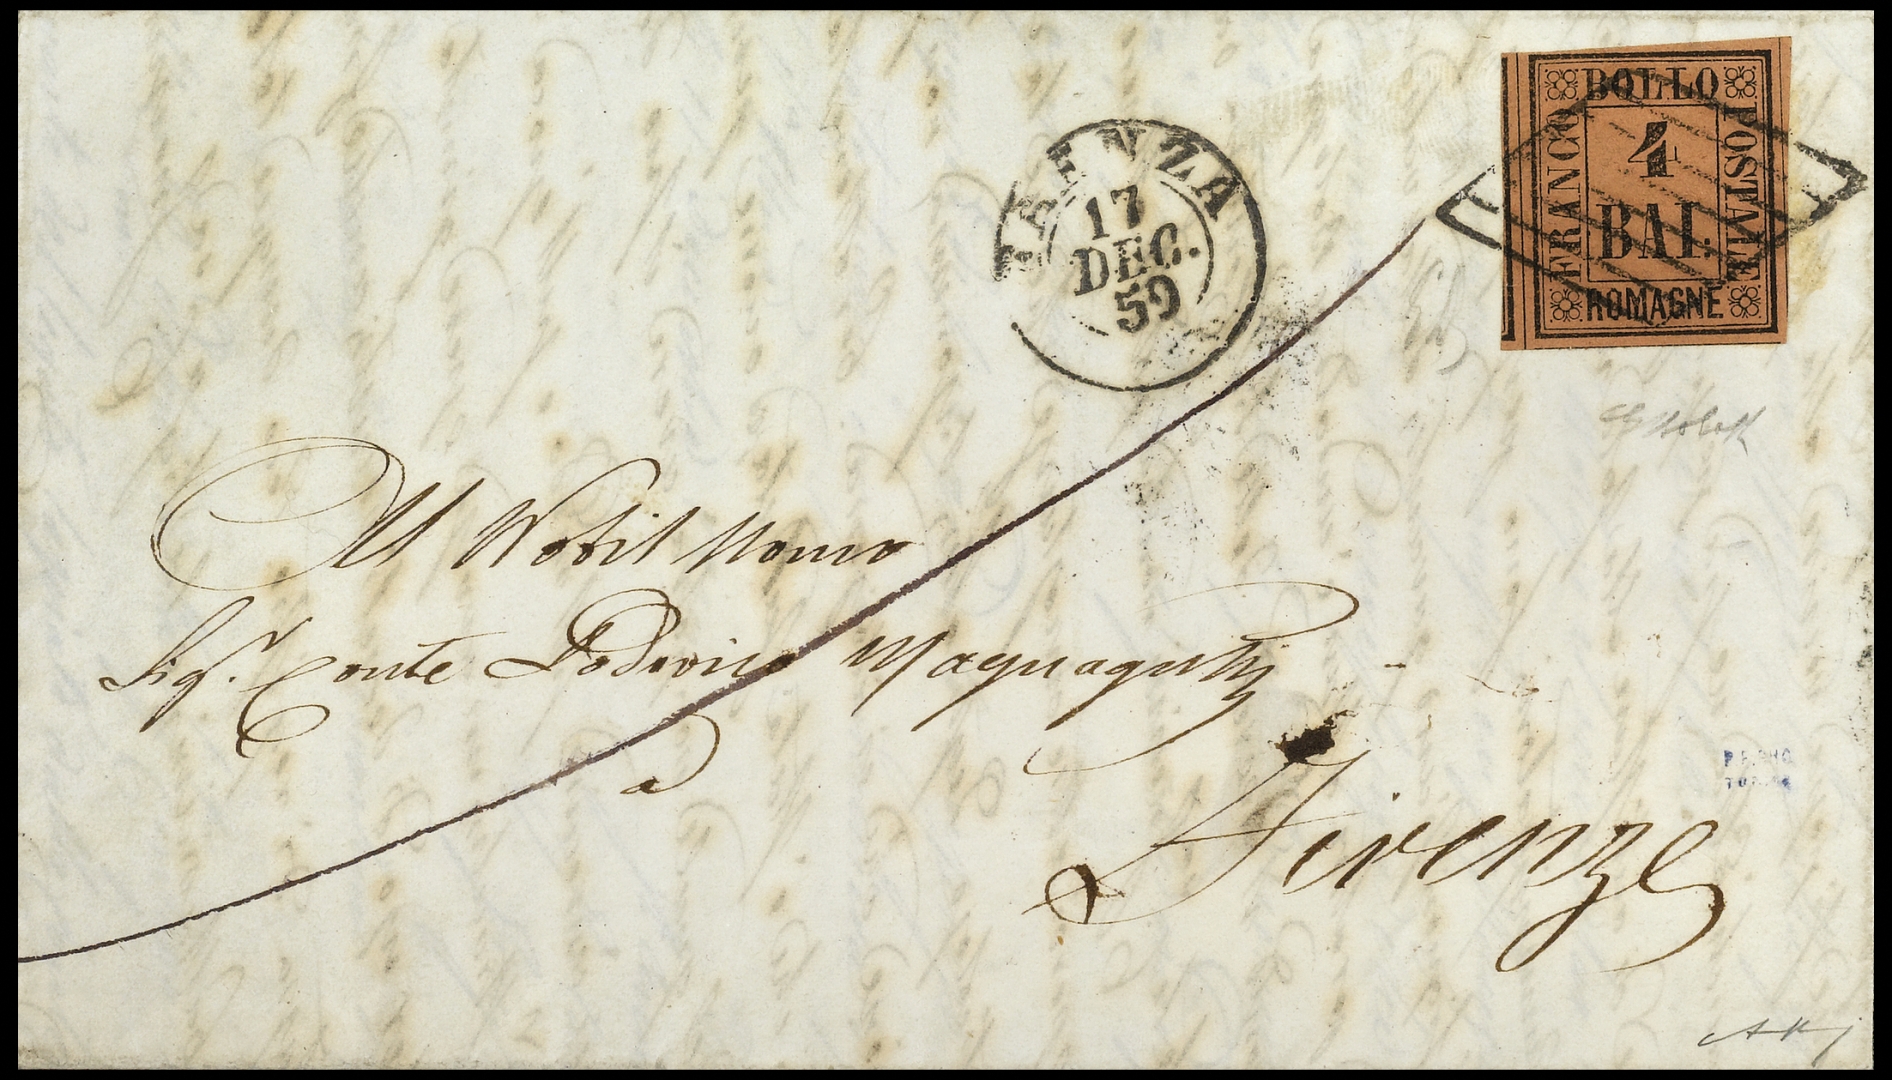 BOLLO
FRANCO
POSTALE
4
BAI.
ROMAGNE
17
DEC.
59
Al Nobil Uomo
Sigr. Conte Lodovico
a
Firenze